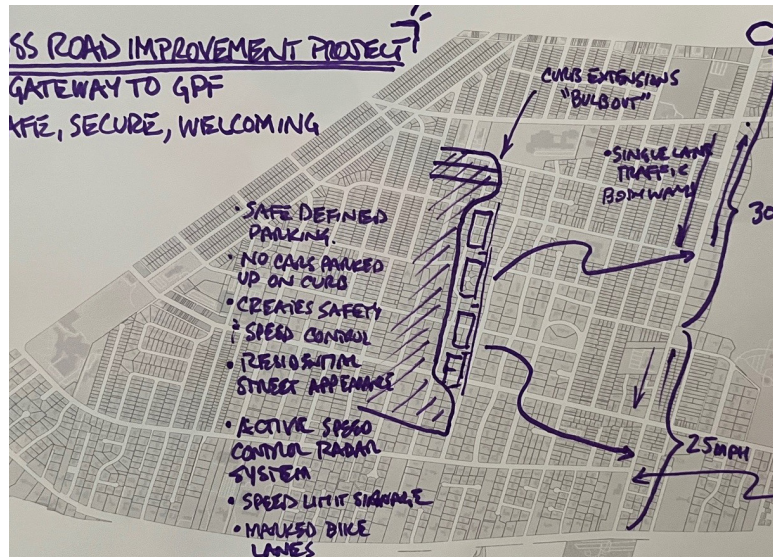 SS ROAD IMPROVEMENT PROJECT
GATEWAY TO GPF
AFE, SECURE, WELCOMING
CURB EXTENSIONS
"BULBOUT"
• SINGLE LANE
TRAFFIC
BOTH WAYS
30
• SAFE DEFINED
PARKING.
• NO CARS PARKED
UP ON CURB
• CREATES SAFETY
& SPEED CONTROL
• RESIDENTIAL
STREET
• ACTIVE SPEED
CONTROL RADAR
SYSTEM
• SPEED LIMIT SIGNAGE
• MARKED BIKE
LANES
25 MPH